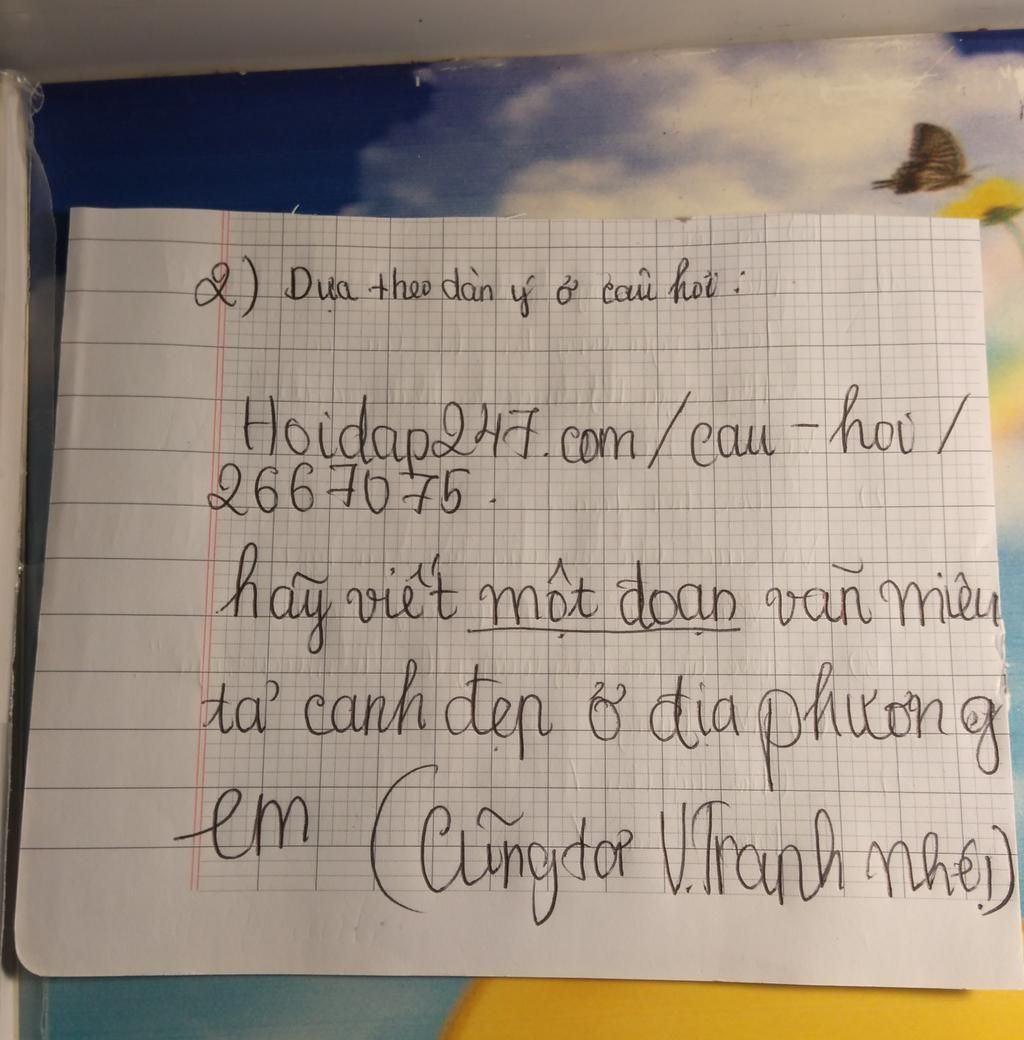 2) Dựa theo dàn ý ở câu hỏi :
Hoidap247.com/cau-hoi/
2667075.
hãy viết một đoạn văn miêu
tả cảnh đẹp ở địa phương
em (Cũng tả V.Tranh nhé!)